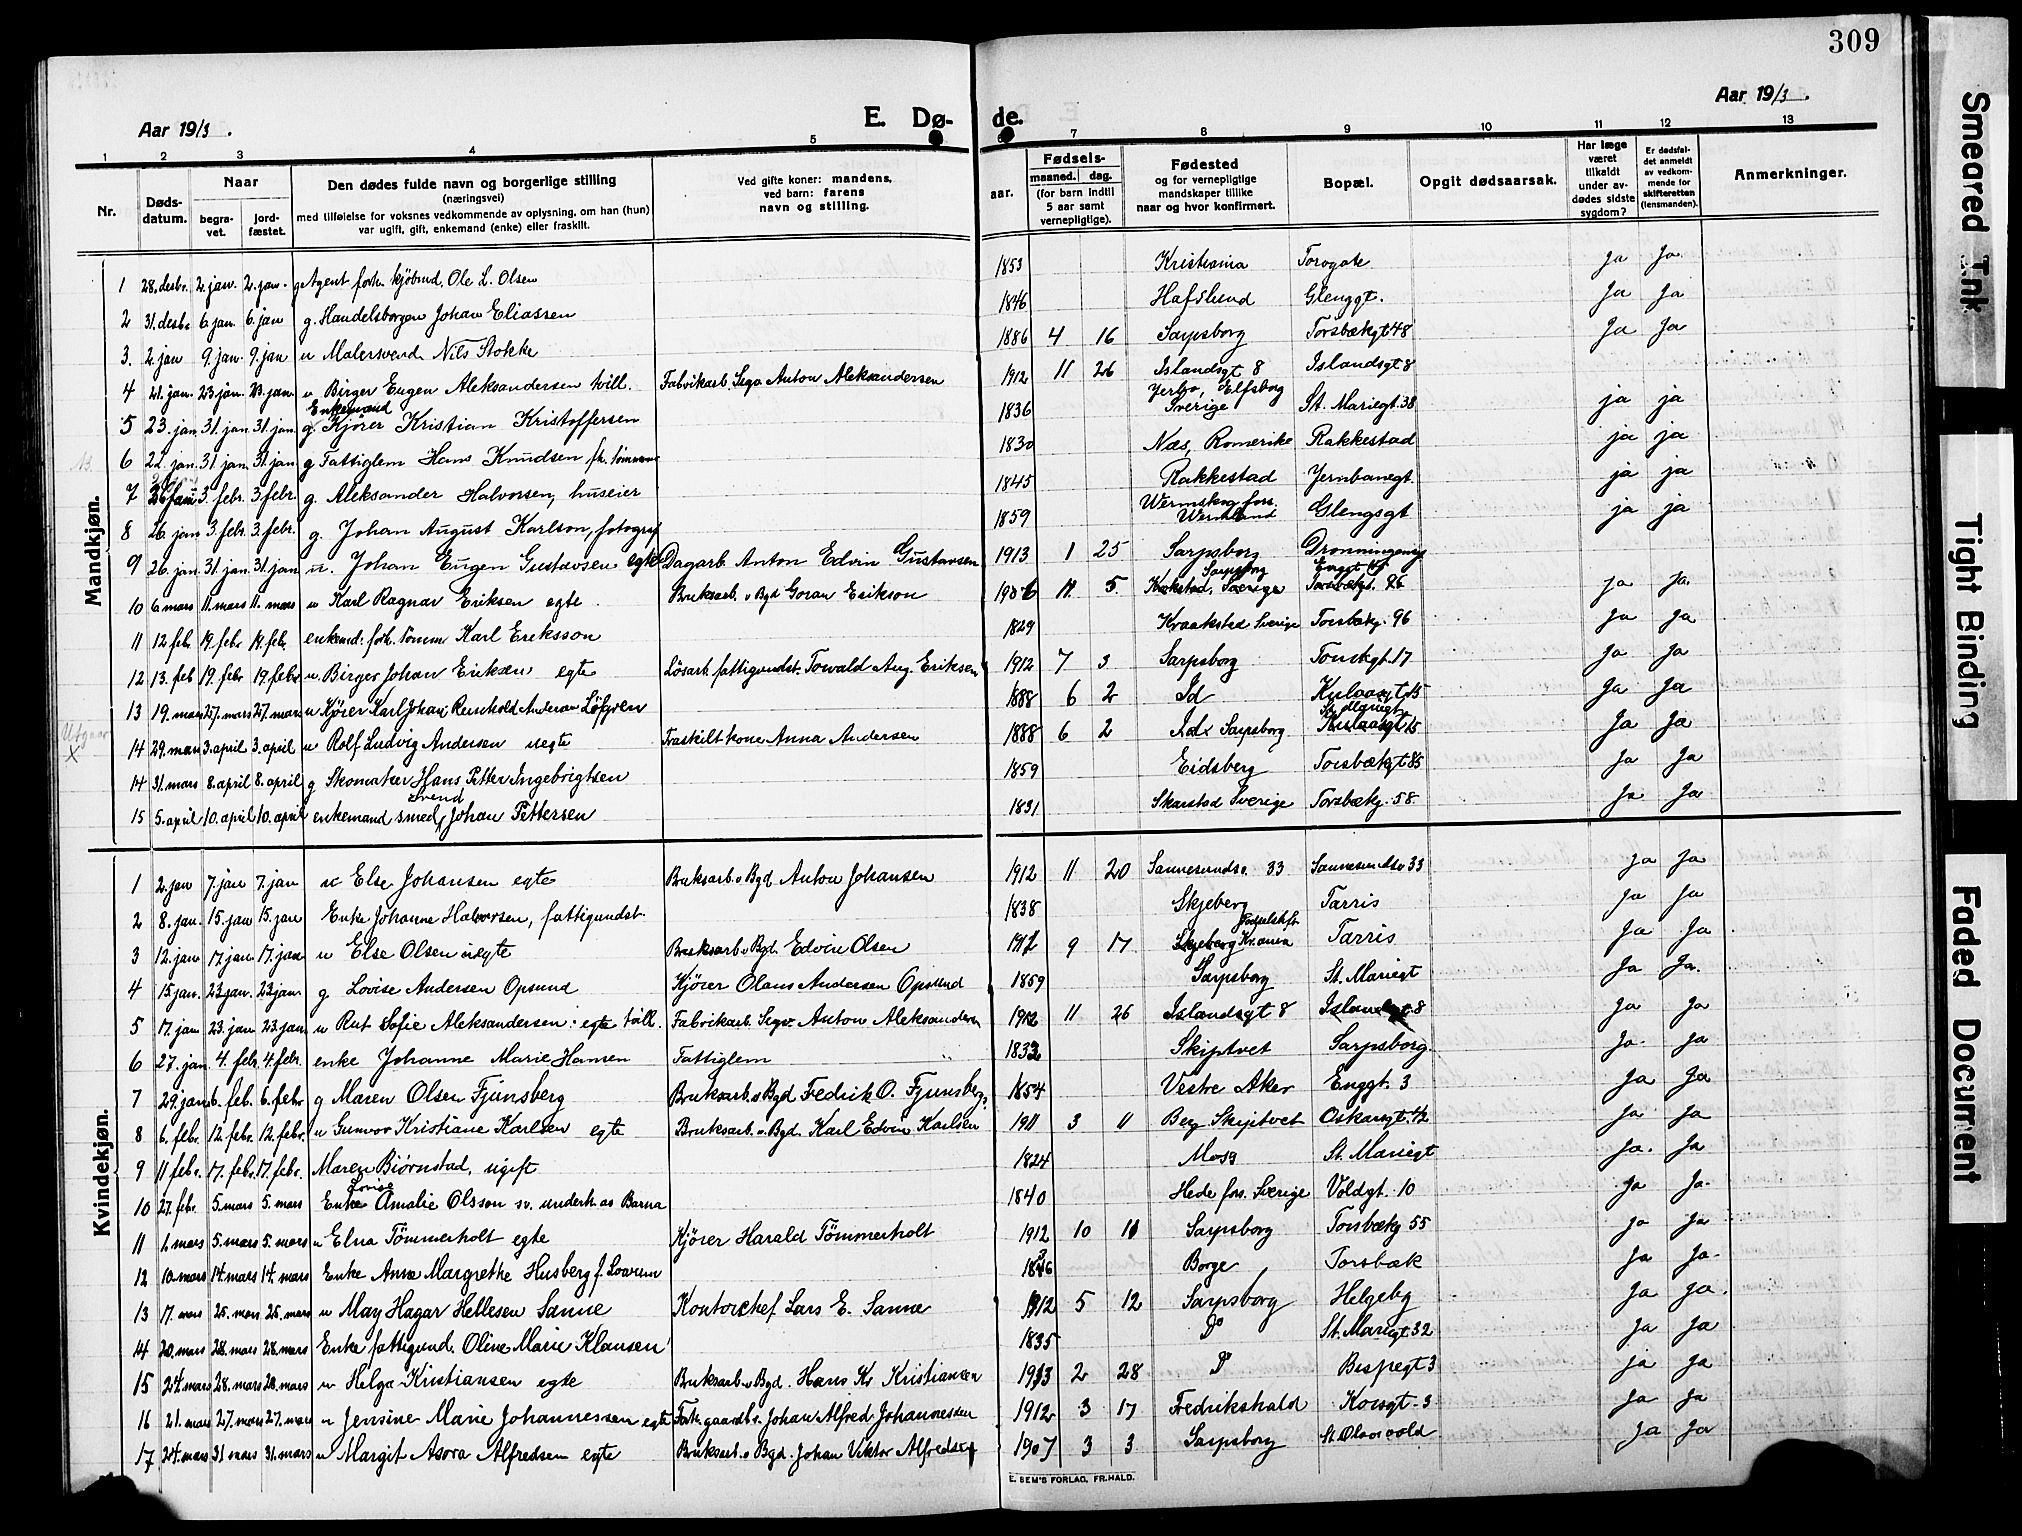 309
Aar 1913.
E. Dø-
de.
Aar 1913.
1 2 3 4 5
7 8 9 10 11 12 13
Nr.
Døds-datum.
Naar
begra-vet.
jord-fæstet.
Den dødes fulde navn og borgerlige stilling
(næringsvei)
med tilføielse for voksnes vedkommende av oplysning, om han (hun)
var ugift, gift, enkemand (enke) eller fraskilt.
Ved gifte koner: mandens,
ved barn: farens
navn og stilling.
aar.
Fødsels-
maaned. dag.
(for barn indtil
5 aar samt
vernepligtige).
Fødested
og for vernepligtige
mandskaper tillike
naar og hvor konfirmert.
Bopæl.
Opgit dødsaarsak.
Har læge
været
tilkaldt
under av-
dødes sidste
sygdom?
Er dødsfal-
det anmeldt
av vedkom-
mende for
skifteretten
(lensmanden).
Anmerkninger.
Mandkjøn.
1 28. desbr. 2. jan. 2. jan. g Agent forh. kjøbmd. Ole L. Olsen 1853 Kristiania Torogate Ja Ja.
2 31. desbr. 6. jan. 6. jan g. Handelsborger Johan Eliassen 1846 Hafslund Glenggt. Ja Ja
3. 2. jan 9. jan. 9. jan u Malersvend Nils Stokke 1886 4 16 Sarpsborg Torsbækgt 48 Ja Ja
4 21. jan. 23 jan. 23. jan. u Birger Eugen Aleksandersen tvill. Fabrikarb. Segv. Anton Aleksandersen 1912 11 26 Islandsgt 8 Islandsgt 8
5 23. jan. 31. jan. 31. jan. g. Enkemand Kjører Kristian Kristoffersen 1836 Jerbo, Elfsborg Sverige St. Mariegt. 38 ja ja
6 22. jan. 31 jan. 31. jan g Fattiglem Hans Knudsen fh. tømmerm 1830 Næs, Romerike Rakkestad ja ja
7 26 jan 3. febr. 3. febr. g. Aleksander Halvorsen, huseier 1845 Rakkestad Jernbanegt. ja ja
8 26. jan 3. febr. 3. febr. g. Johan August Karlson, fotograf 1859 Wermskog fors. Wermland Glengsgt ja ja
9 26. jan. 31. jan. 31. jan u. Johan Eugen Gustavsen egte Dagarb. Anton Edvin Gustavsen 1913 1 25 Sarpsborg Dronningensg
10 6. mars 11. mars 11. mars u Karl Ragnar Eriksen egte Bruksarb. v Bgd Goran Erikson 1906 11 5 Sarpsborg Krokstad, Sverige Torsbækgt. 86 ja ja.
11 12. febr. 19. febr 19. febr. enkemd. forh. tømm Karl Eriksson 1829 Kraakstad Sverige Torsbækg. 96 ja Ja
12 13. feb 19. febr 19. febr u Birger Johan Eriksen egte Løsarb. fattigundst. Torvald Aug. Eriksen 1912 7 3 Sarpsborg Tomtegt. 17 ja Ja
13 19. mars 27. mars 27. mars u Kjører Karl Johan Reinhold Andersen Løfgren 1888 6 2 Id Kulaasgt 15 Ja Ja
Utgaar X
14 29. mars 3. april 3. april u Rolf Ludvig Andersen uegte Fraskilt kone Anna Andersen 1888 6 2 Id Sarpsborg Kulaasgt 15 Ja Ja
14 31. mars 8. april 8. april g Skomaker Hans Petter Ingebrigtsen 1859 Eidsberg Torsbækgt 85 Ja Ja
15 5. april 10. april 10. april enkemand smed svend Johan Pettersen 1831 Skarstad Sverige Torsbækg. 58. Ja Ja
Kvindekjøn.
1 2. jan 7. jan 7. jan u Else Johansen egte Bruksarb. v Bgd Anton Johansen 1912 11 20 Sannesundsv. 33 Sannesundsv 33 ja Ja
2 8. jan. 15. jan 15. jan Enke Johanne Halvorsen, fattigundst. 1838 Skjeberg Tarris ja Ja
3 12. jan 17. jan. 17. jan u Else Olsen uegte Bruksarb v Bgd. Edvin Olsen 1912 9 17 Skjeberg Fødselsst. Kr.ania Tarris Ja Ja
4 15. jan. 23. jan. 23. jan. g Lovise Andersen Opsund Kjører Olaus Andersen Opsund 1859 Sarpsborg St. Mariegt Ja Ja.
5 17. jan 23. jan 23. jan u Rut Sofie Aleksandersen egte tvill. Fabrikarb. Segv. Anton Aleksandersen 1912 11 26 Islandsgt 8 Islandsgt 8 Ja Ja
6 27. jan 4. febr. 4. febr. enke Johanne Marie Hansen Fattiglem 1832 Skiptvet Sarpsborg Ja. Ja
7 29. jan 6. feb. 6. febr g Maren Olsen Fjunsberg Bruksarb. v Bgd Fredrik O. Fjunsberg 1854 Vestre Aker Enggt. 3 Ja Ja
8 6. febr. 12. febr. 12. febr. u Gunvor Kristiane Karlsen egte Bruksarb. v. Bgd. Karl Edvin Karlsen 1911 3 11 Berg Skiptvet Oskarsgt. 42 Ja Ja
9 11. febr. 17. febr. 17. febr. Maren Bjørnstad, ugift 1824 Moss St. Mariegt Ja. Ja
10 27. febr. 5. mars 5. mars Enke Lovise Amalie Olsson sv. underh. av Barna 1840 Hede fors. Sverige Voldgt. 10 ja Ja.
11 1. mars 5. mars 5. mars u Elna Tømmerholt egte Kjører Harald Tømmerholt 1912 10 10 Sarpsborg Torsbækg 55 Ja Ja
12 10. mars 14. mars 14. mars Enke Anna Margrethe Husberg f. 1836 Borge Torsbæk Ja Ja.
13 17. mars 25. mars 25. mars u May Hagar Hellesen Sanne Kontorchef Lars E. Sanne 1912 5 12 Sarpsborg Helgeby Ja Ja.
14 20. mars 28. mars 28. mars Enke fattigund. Oline Marie Klausen 1835 Do St. Mariegt. 32 Ja Ja
15 24. mars 28. mars 28. mars u Helga Kristiansen egte Bruksarb. v Bgd. Hans Kr Kristiansen 1913 2 28 Do Bispegt 3 ja Ja
16 21. mars 27. mars 27. mars u Jensine Marie Johannessen egte gaardb. Johan Alfred Johannessen 1912 3 17 Fredrikshald Korsgt. 3 Ja Ja
17 24. mars 31 mars 31. mars u Margit Asora Alfredsen egte Bruksarb. v Bgd. Johan Viktor Alfredsen 1907 3 3 Sarpsborg St. Olavsvold Ja Ja
E. SEM'S FORLAG, FR.HALD.
Smeared Ink
Tight Binding
Faded Document